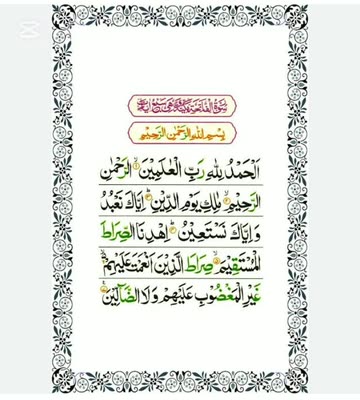 سُوْرَةُ الْفَاتِحَةِ مَكِّيَّةٌ وَهِيَ سَبْعُ اٰيَاتٍ
بِسْمِ اللّٰهِ الرَّحْمٰنِ الرَّحِيْمِ
اَلْحَمْدُ لِلّٰهِ رَبِّ الْعٰلَمِيْنَ ۙ الرَّحْمٰنِ
الرَّحِيْمِ ۙ مٰلِكِ يَوْمِ الدِّيْنِ ؕ اِيَّاكَ نَعْبُدُ
وَ اِيَّاكَ نَسْتَعِيْنُ ؕ اِهْدِنَا الصِّرَاطَ
الْمُسْتَقِيْمَ ۙ صِرَاطَ الَّذِيْنَ اَنْعَمْتَ عَلَيْهِمْ ۙ
غَيْرِ الْمَغْضُوْبِ عَلَيْهِمْ وَلَا الضَّآلِّيْنَ